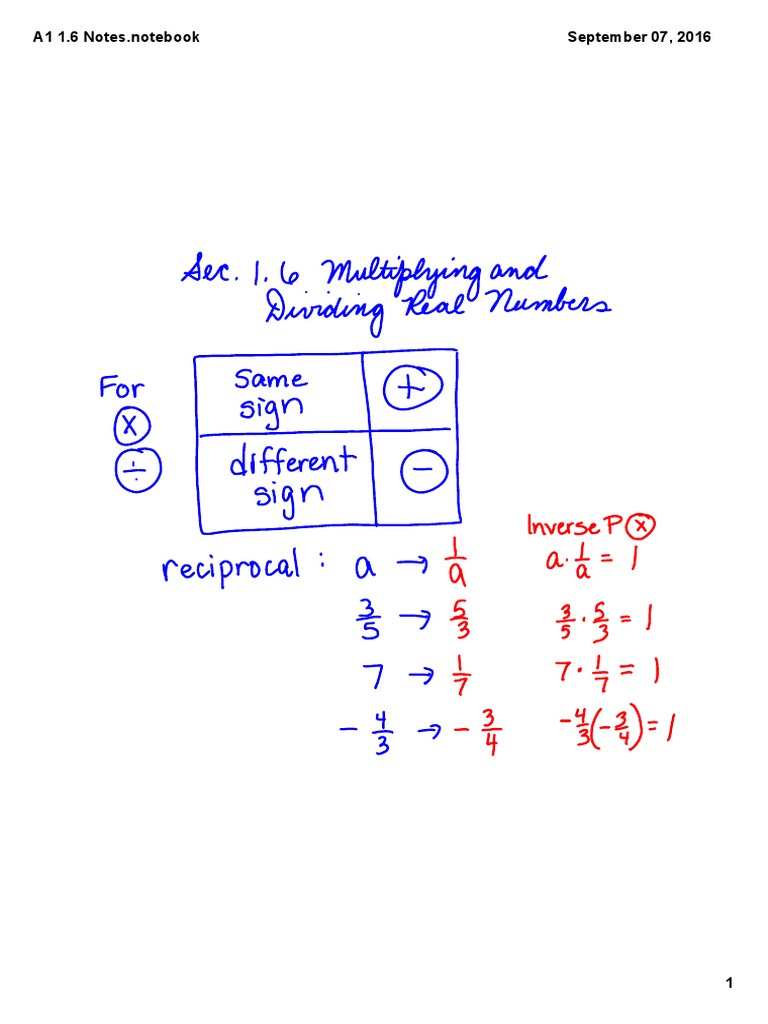 A1 1.6 Notes.notebook September 07, 2016
Sec. 1.6 Multiplying and
Dividing Real Numbers
For
×
÷
same
sign
+
different
sign
−
Inverse P ×
reciprocal : a → 1/a a · 1/a = 1
3/5 → 5/3 3/5 · 5/3 = 1
7 → 1/7 7 · 1/7 = 1
− 4/3 → − 3/4 −4/3(−3/4) = 1
1